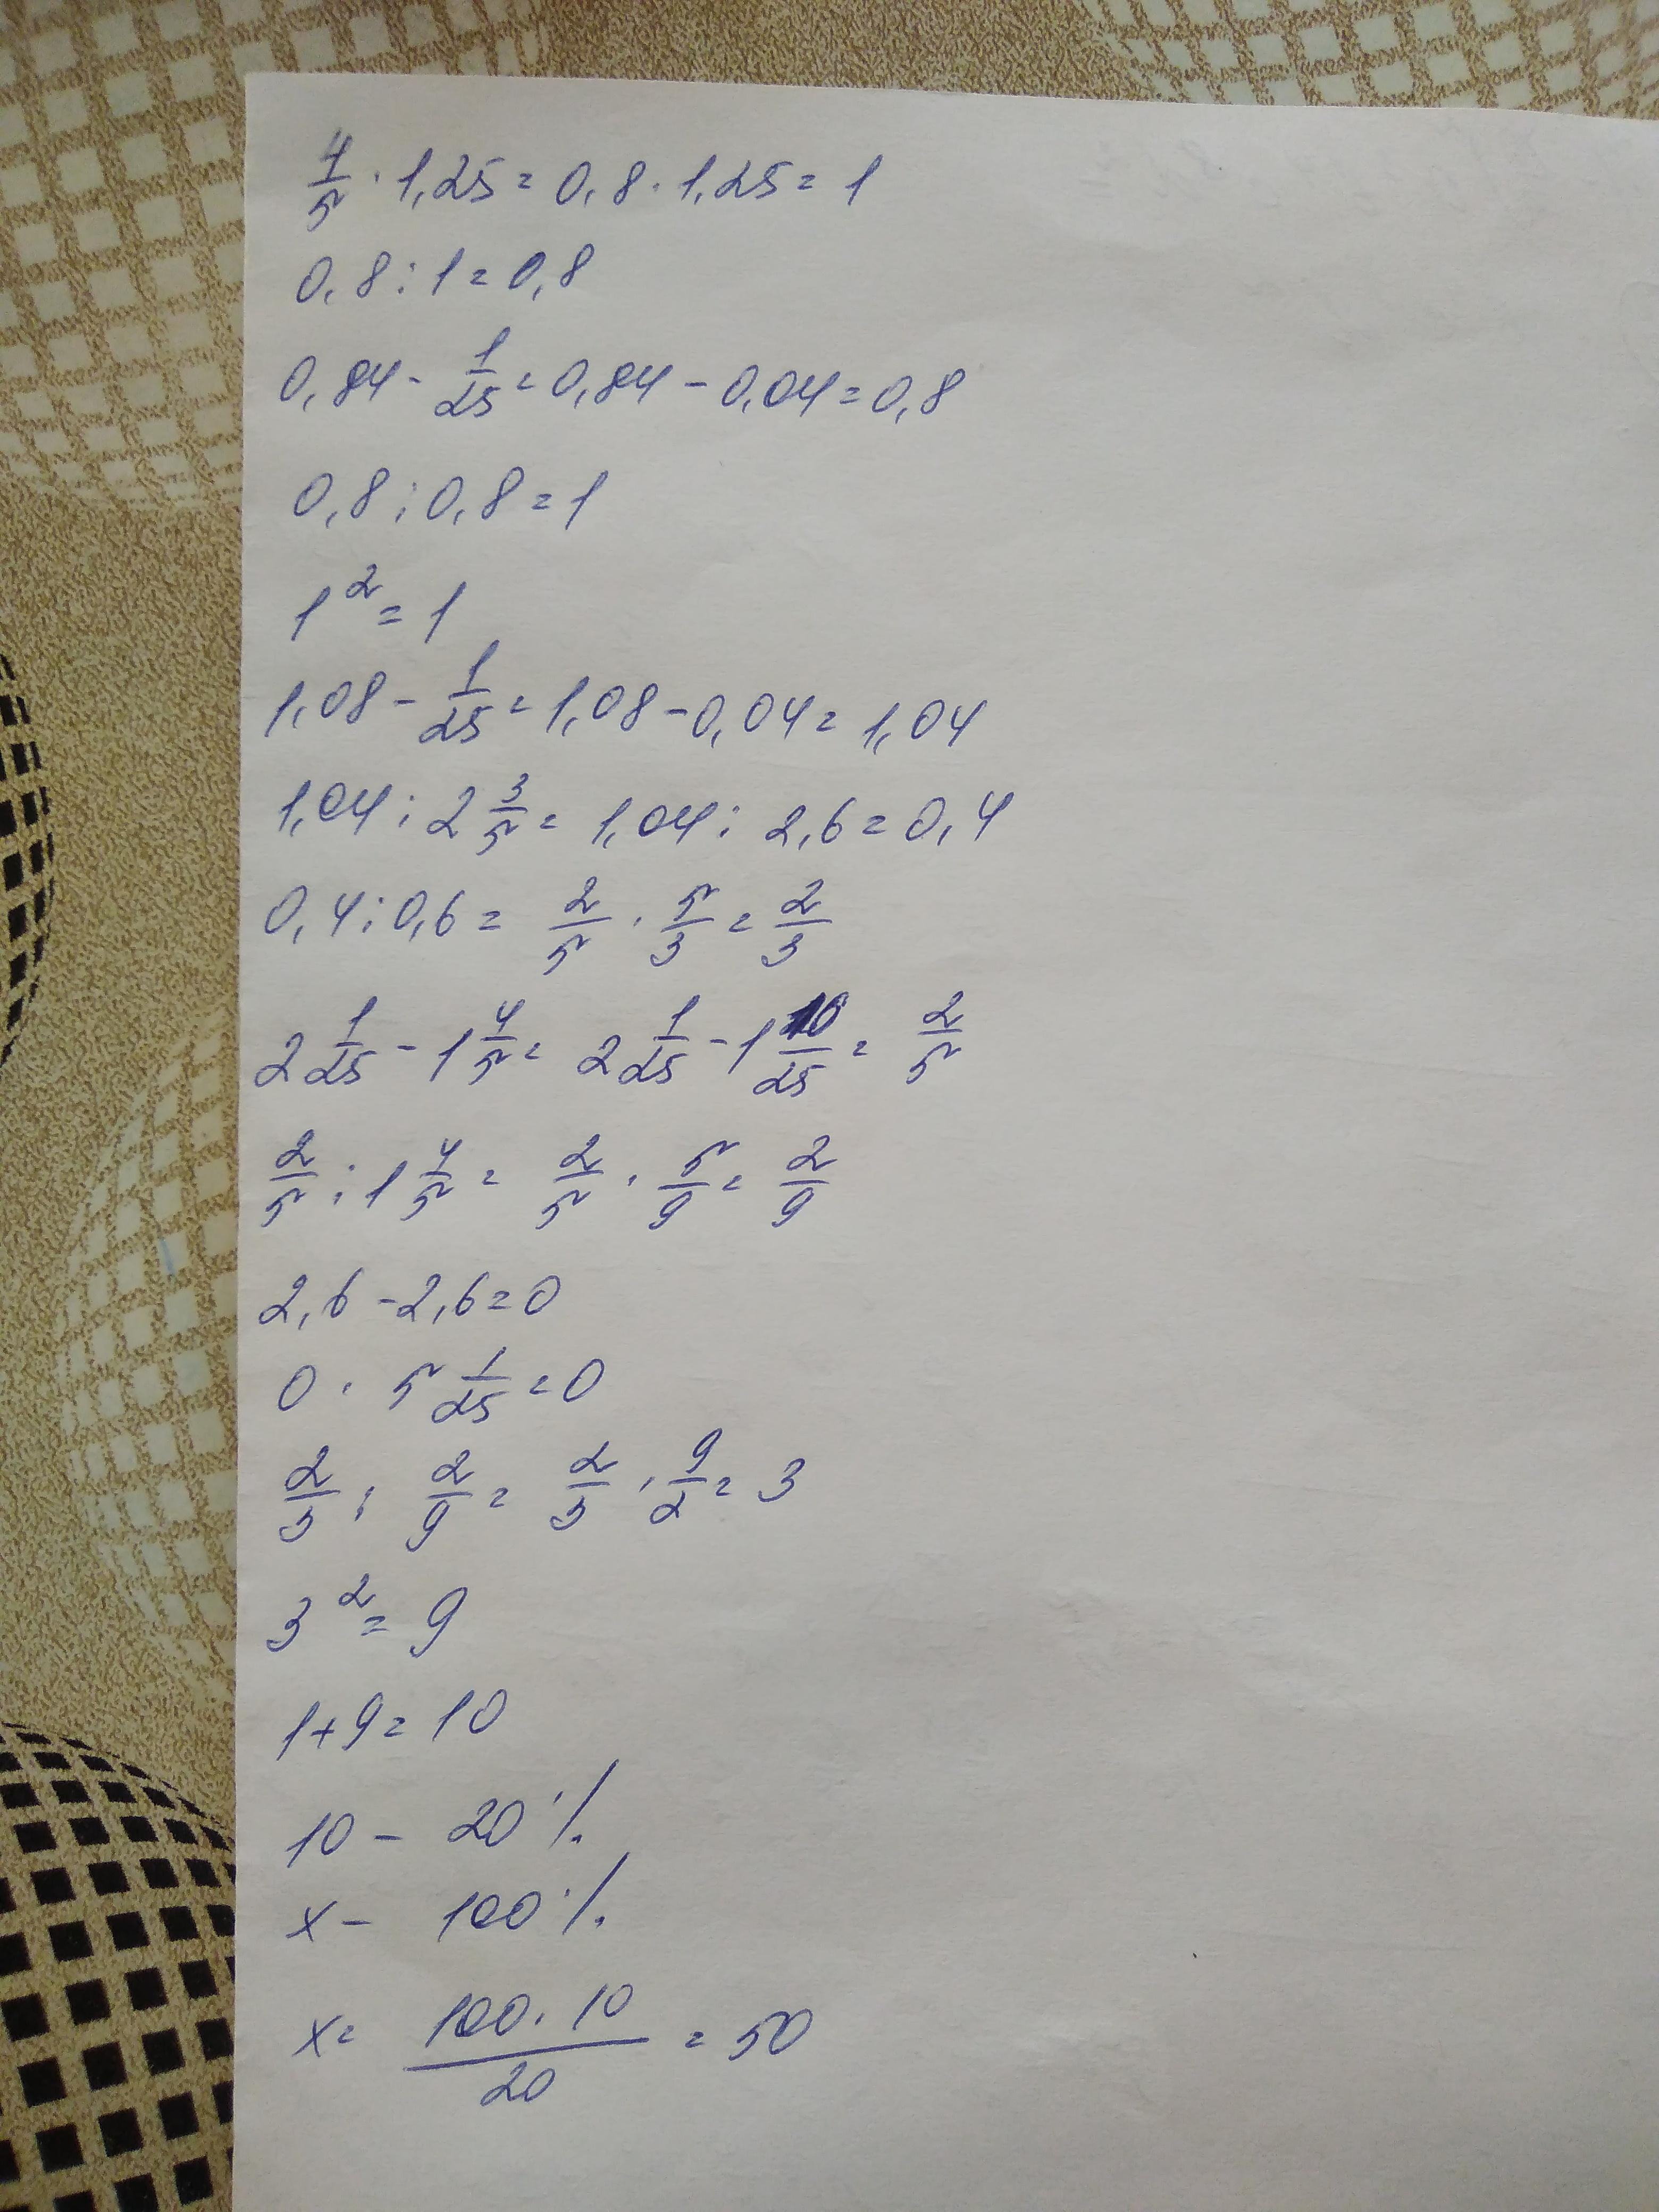 4/5 · 1,25 = 0,8 · 1,25 = 1
0,8 : 1 = 0,8
0,84 - 1/25 = 0,84 - 0,04 = 0,8
0,8 : 0,8 = 1
1² = 1
1,08 - 1/25 = 1,08 - 0,04 = 1,04
1,04 : 2 3/5 = 1,04 : 2,6 = 0,4
0,4 : 0,6 = 2/5 · 5/3 = 2/3
2 1/25 - 1 4/5 = 2 1/25 - 1 10/25 = 2/5
2/5 : 1 4/5 = 2/5 · 5/9 = 2/9
2,6 - 2,6 = 0
0 · 5 1/25 = 0
2/3 : 2/9 = 2/3 · 9/2 = 3
3² = 9
1 + 9 = 10
10 - 20%
x - 100%
x = 100 · 10 / 20 = 50